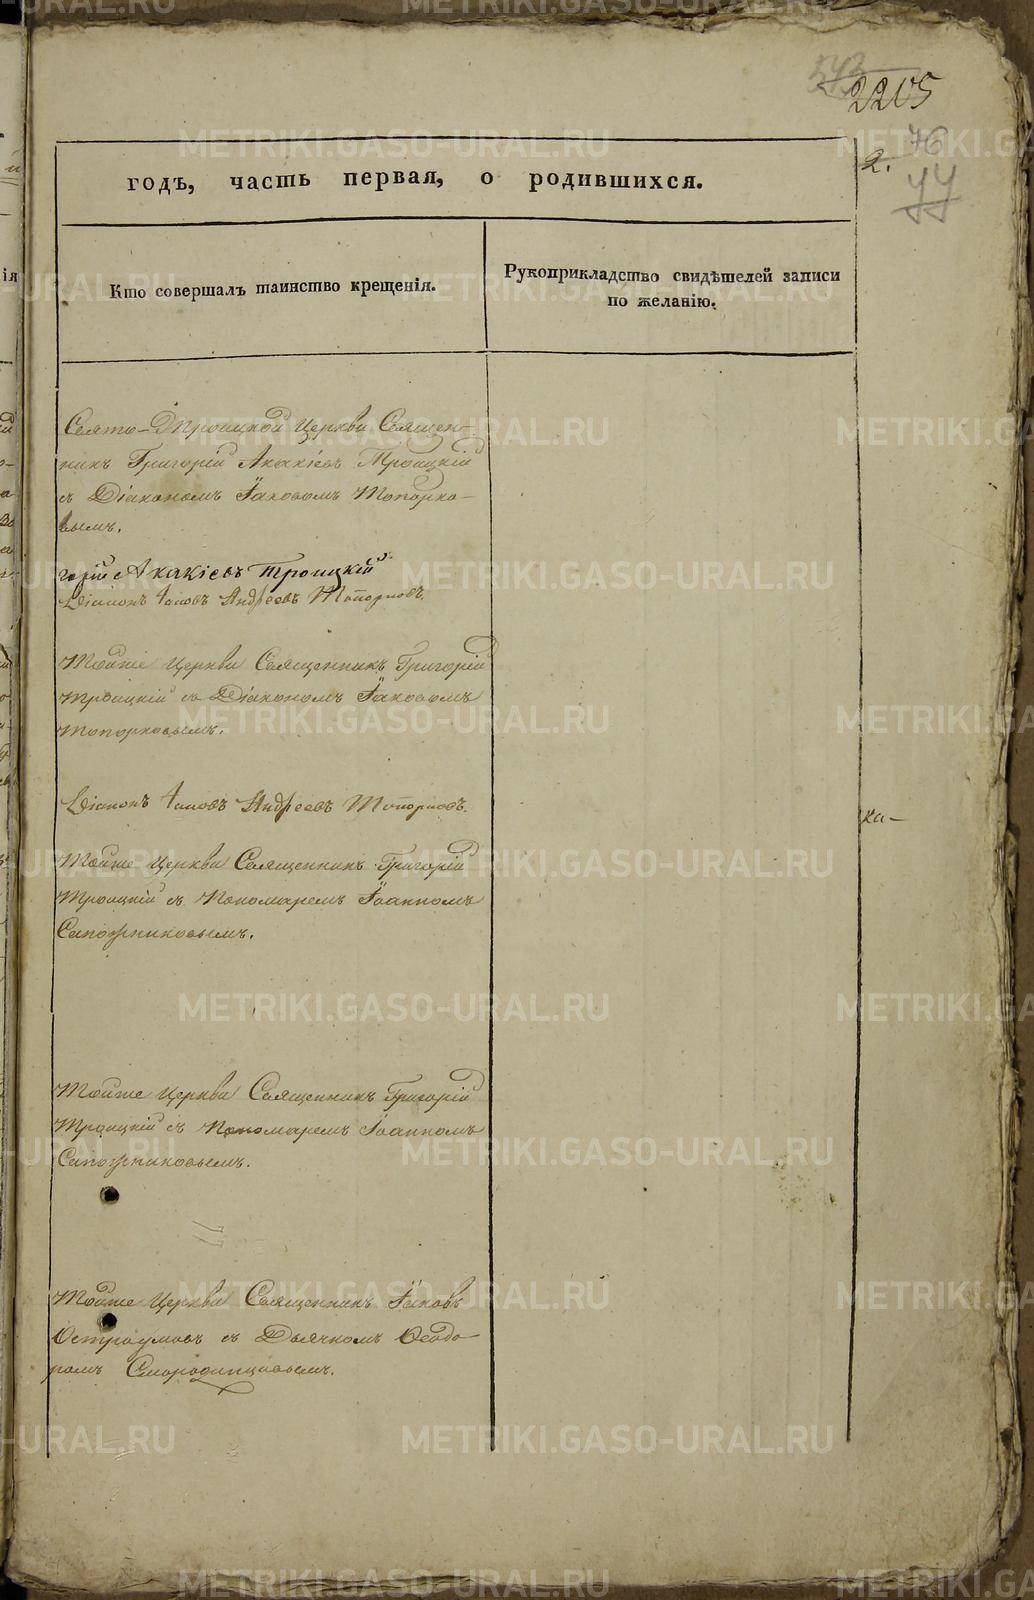 2205
76
2.
77
годъ, часть первая, о родившихся.
Кто совершалъ таинство крещенія.
Рукоприкладство свидѣтелей записи
по желанію.
Свято-Троицкой Церкви Священ-
никъ Григорій Акакіевъ Троицкій
съ Діакономъ Іаковомъ Топорко-
вымъ.
горій Акакіевъ Троицкій
Діаконъ Іаковъ Андреевъ Топорковъ.
Тойже Церкви Священникъ Григорій
Троицкій съ Діакономъ Іаковомъ
Топорковымъ.
Діаконъ Іаковъ Андреевъ Топорковъ.
ка-
Тойже Церкви Священникъ Григорій
Троицкій съ Пономаремъ Іоанномъ
Сапожниковымъ.
Тойже Церкви Священникъ Григорій
Троицкій съ Пономаремъ Іоанномъ
Сапожниковымъ.
Тойже Церкви Священникъ Іаковъ
Остроумовъ съ Дьячкомъ Ѳеодо-
ромъ Смородинцовымъ.
METRIKI.GASO-URAL.RU